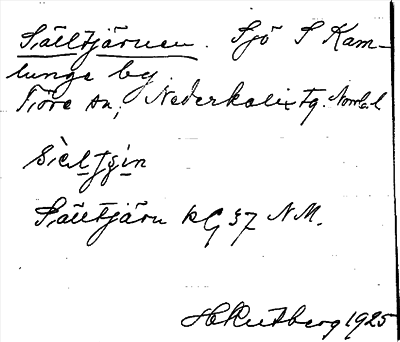 Sälltjärnen. Sjö S Kam-
lunge by
Töre sn, Nederkalix tg. Norrb. l
Sältjärn kG 37 NM.
H Rutberg 1925